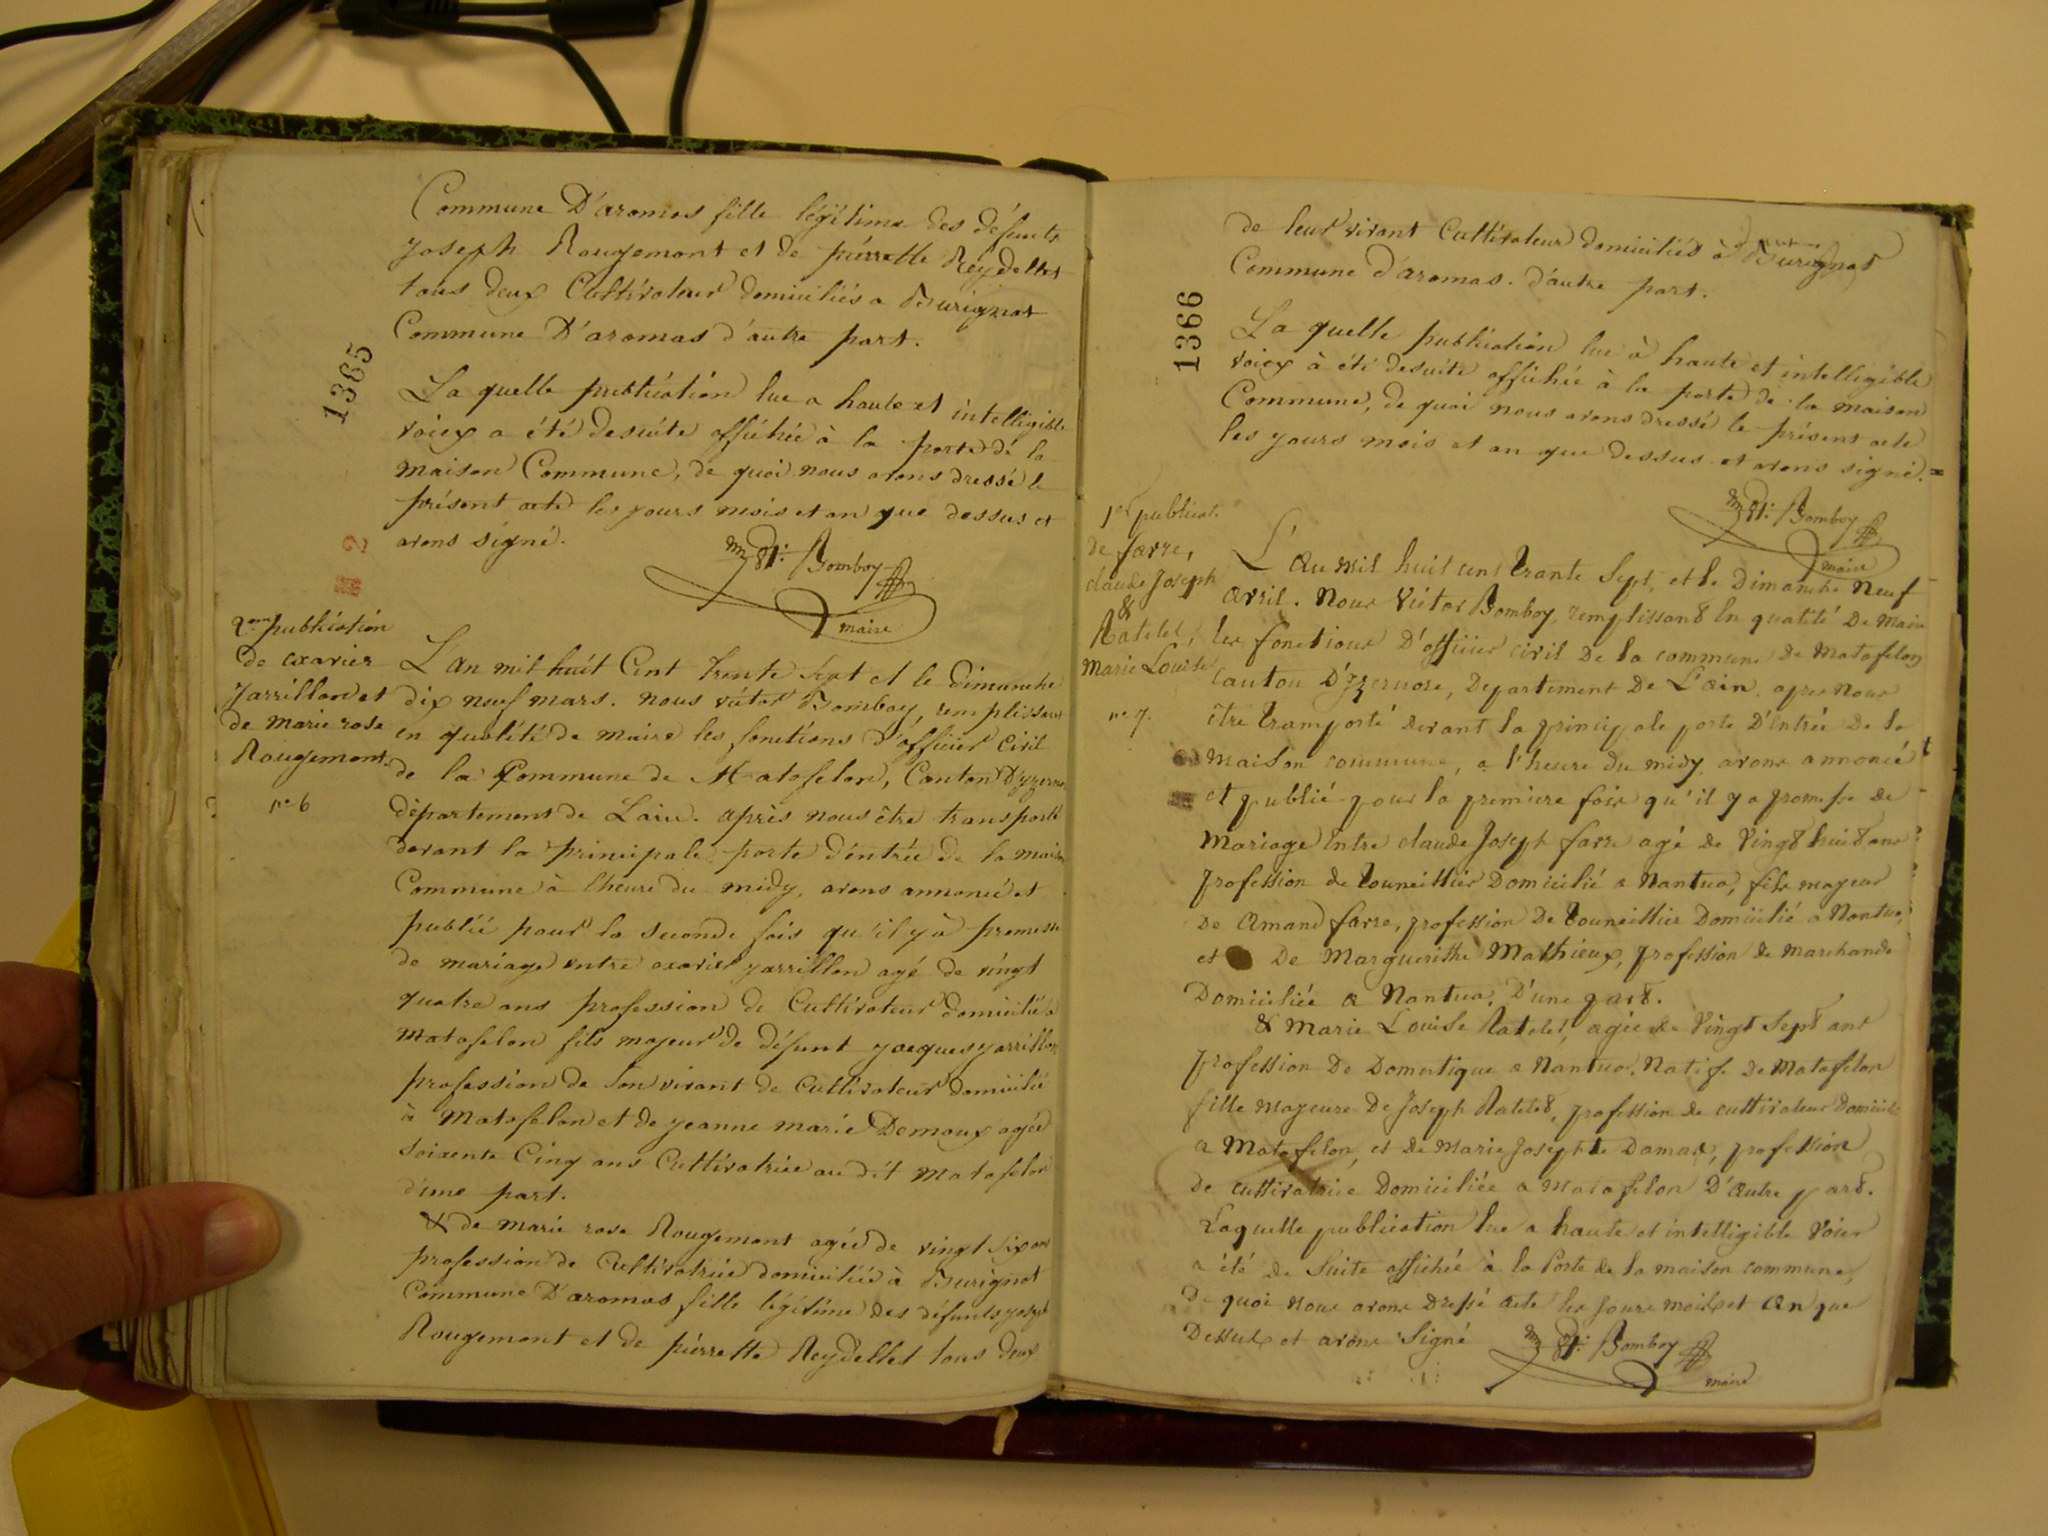 Commune D'aromas fille légitime des défunts
Joseph Rougemont et de pierrette Reydellet
tous deux Cultivateur domiciliés a Burignat
Commune D'aromas d'autre part.
1365
La quelle publication lue a haute et intelligible
voiex a été desuite affichée à la porte de la
maison Commune, de quoi nous avons dressé le
présent acte les jours mois et an que dessus et
avons signé.
Bomboy
maire
2em publication
de exavier
Jarrillon et
de marie rose
Rougemont
no 6
L'an mil huit Cent trente sept et le Dimanche
dix neuf mars. nous victor Bomboy remplissant
en qualité de maire les fonctions d'officier Civil
de la Commune de Matafelon, Canton D'yzernore
département de Lain. après nous être transporté
devant la principale porte d'entrée de la maison
Commune à l'heure du midy, avons annoncé et
publié pour la seconde fois qu'il y a promesse
de mariage entre exavier Jarrillon agé de vingt
quatre ans profession de Cultivateur domicilié a
Matafelon fils majeur de défunt Jacques Jarrillon
profession de son vivant de Cultivateur domicilié
à Matafelon et de jeanne marie Demoux agée
soixente Cinq ans Cultivatrice au dit Matafelon
d'une part.
& de marie rose Rougemont agée de vingt six ans
profession de Cultivatrice domiciliée à Burignat
Commune D'aromas fille légitime des défunts joseph
Rougemont et de pierrette Reydellet tous deux
de leur vivant Cultivateur domiciliés à Burignat
Commune d'aromas. d'autre part.
1366
La quelle publication lue à haute et intelligible
voiex à été desuite affichée à la porte de la maison
Commune, de quoi nous avons dressé le présent acte
les jours mois et an que dessus et avons signé.
Bomboy
maire
1er publicat.
de farre,
claude Joseph
&
Ratelet,
Marie Louise
no 7.
L'An mil huit cent trante Sept, et le Dimanche Neuf
Avril. Nous Victor Bomboy, remplissant En qualité De Maire
les fonctions D'officier civil De la commune De Matafelon
Canton D'Izernore, Departement De L'ain, apres Nous
être transporté devant la principale porte D'Entrée De la
Maison commune, a l'heure du midy, avons annoncé
et publié pour la premiere fois qu'il y a promesse de
Mariage Entre claude Joseph farre agé de Vingt huit ans
profession de touneillier Domicilié a Nantua, fils majeur
De Amand farre, profession De touneillier Domicilié a Nantua,
et De Marguerithe Mathieux, profession de marchande
Domiciliée a Nantua, D'une part.
& Marie Louise Ratelet, agée de Vingt Sept ans
profession De Domestique a Nantua, Natife De Matafelon
fille majeure De Joseph Ratelet, profession de cultivateur Domicilié
a Matafelon, et de Marie Josephte Damas, profession
de cultivatrice Domiciliée a Matafelon D'Autre part.
Laquelle publication lue a haute et intelligible Voies
a été de Suite affichée à la Porte de la maison commune,
De quoi Nous avons Dressé acte les Jours mois et An que
Dessus et avons Signé
Bomboy
maire